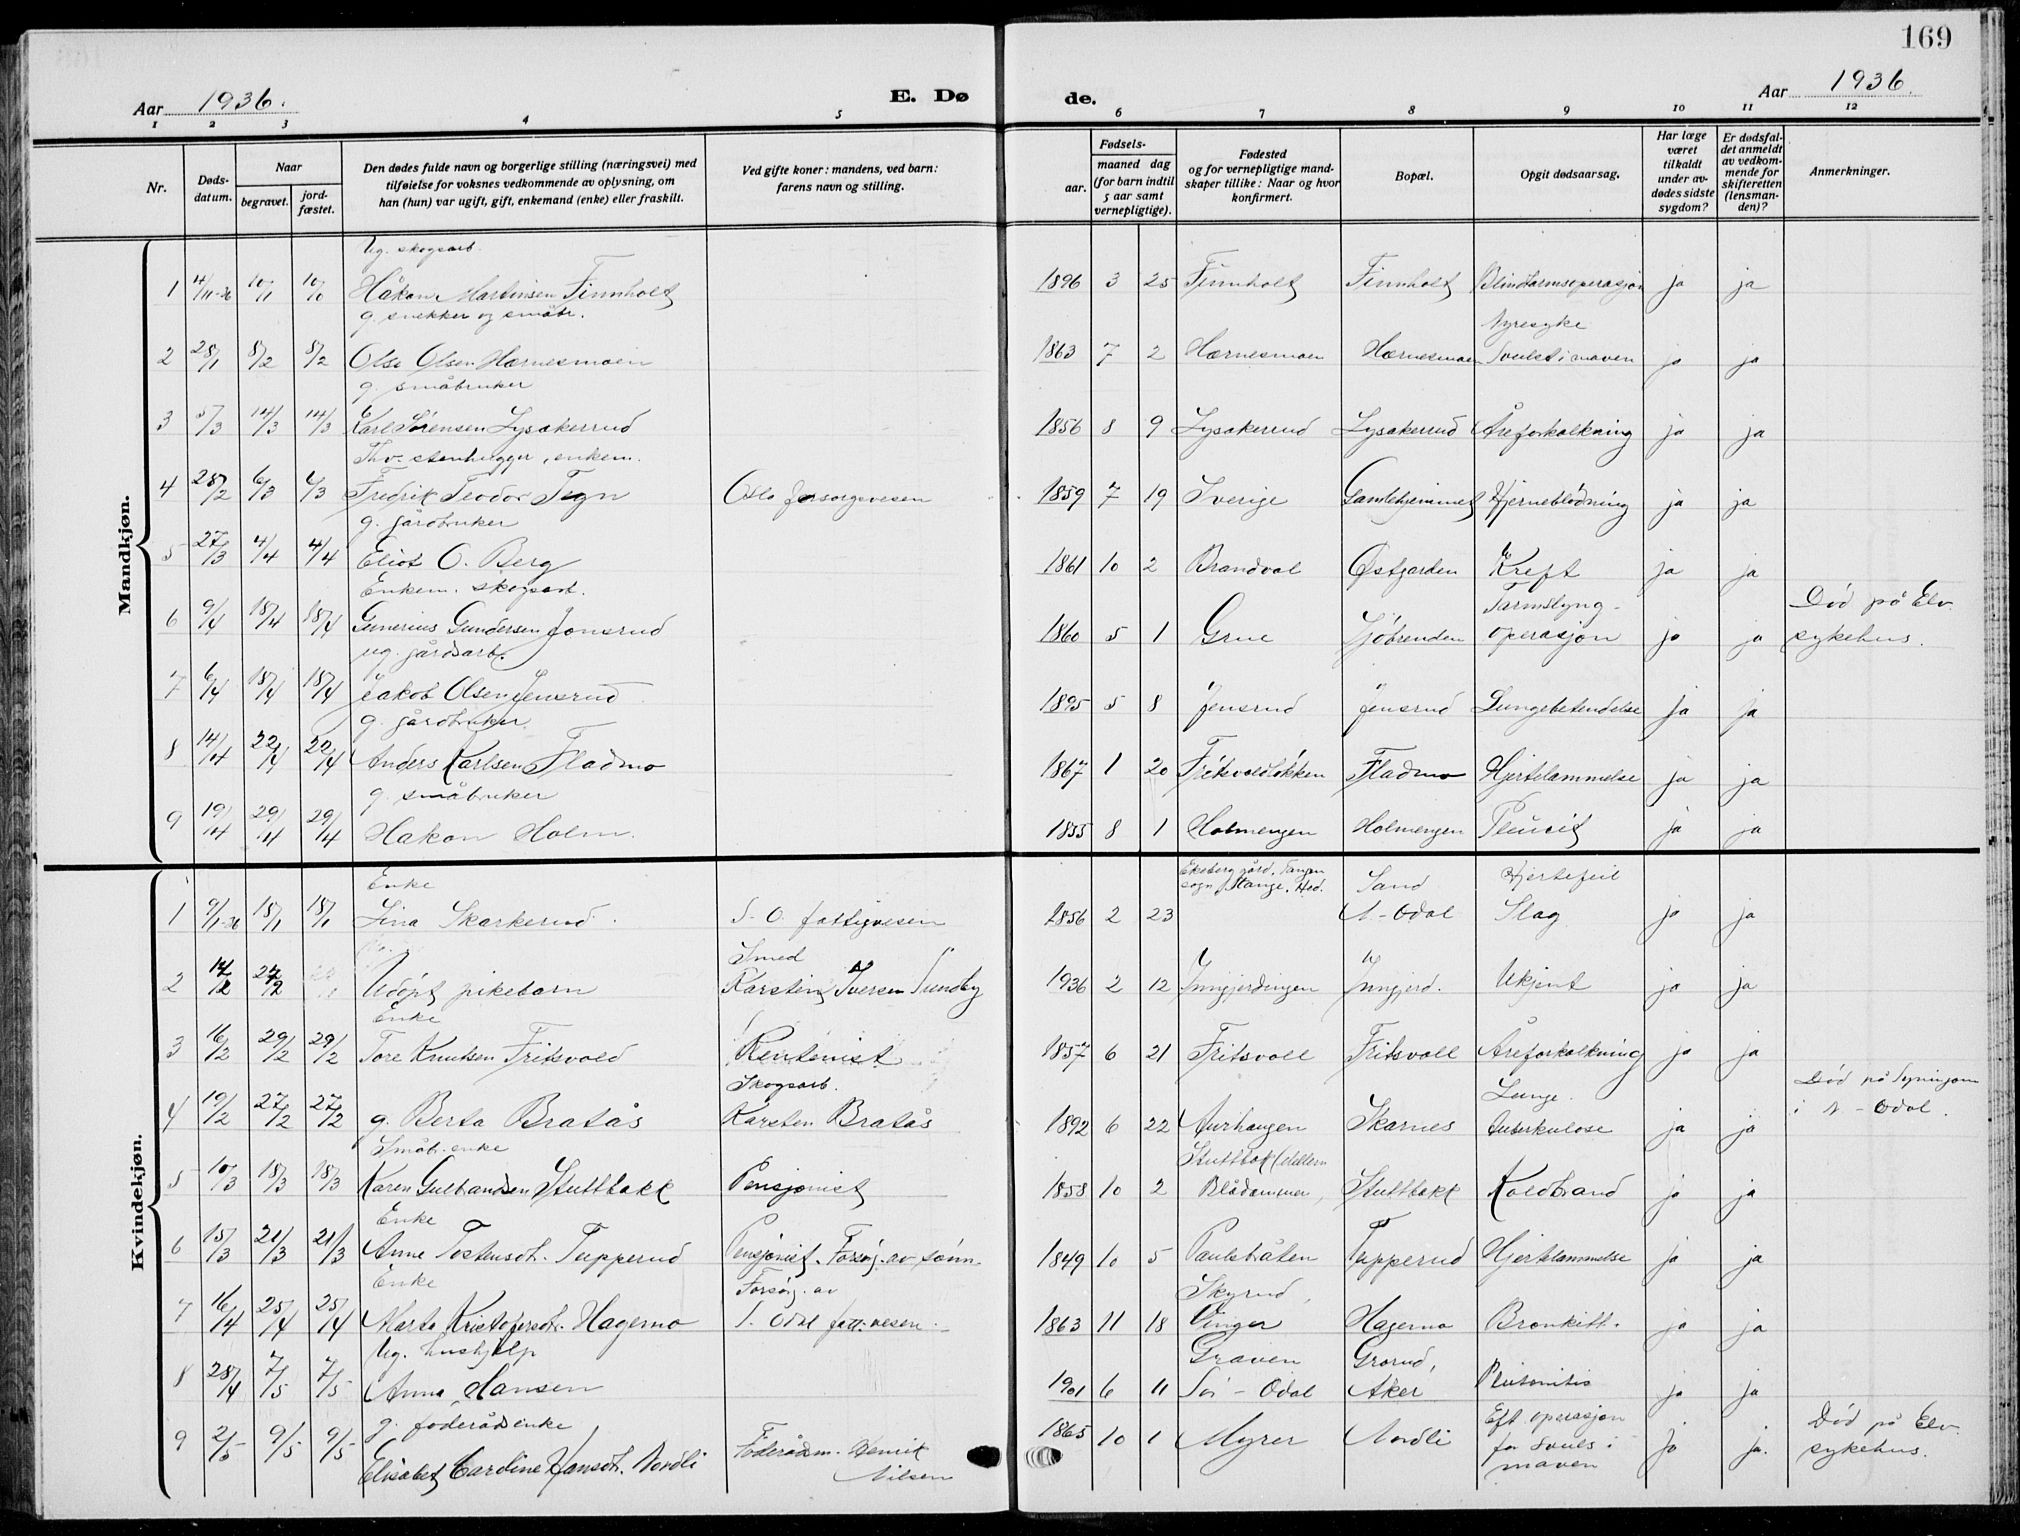 169
Aar 1936.
E. Dø
de.
Aar 1936.
1 2 3 4 5 6 7 8 9 10 11 12
Nr.
Døds-
datum.
Naar
begravet.
jord-
fæstet.
Den dødes fulde navn og borgerlige stilling (næringsvei) med
tilføielse for voksnes vedkommende av oplysning, om
han (hun) var ugift, gift, enkemand (enke) eller fraskilt.
Ved gifte koner: mandens, ved barn:
farens navn og stilling.
Fødsels-
aar.
maaned dag
(for barn indtil
5 aar samt
vernepligtige).
Fødested
og for vernepligtige mand-
skaper tillike: Naar og hvor
konfirmert.
Bopæl.
Opgit dødsaarsag.
Har læge
været
tilkaldt
under av-
dødes sidste
sygdom?
Er dødsfal-
det anmeldt
av vedkom-
mende for
skifteretten
(lensman-
den)?
Anmerkninger.
Mandkjøn.
Ug. skogsarb.
1 4/1-36 10/1 Håkon Martinsen Finnholt 1896 3 25 Finnholt Finnholt Blindtarmsoperasjon ja ja
g. snekker og småbr.
Nyresyke
2 28/1 8/2 8/2 Ole Olsen Hærnesmoen 1863 7 2 Hærnesmoen Hærnesmoen Svulst i maven ja ja
g. småbruker
3 5/3 14/3 14/3 Karl Sørensen Lysakerrud 1856 8 9 Lysakerrud Lysakerrud Åreforkalkning ja ja
Fhv. stenhugger, enkem.
4 28/2 6/3 6/3 Fredrik Teodor Tegn Oslo forsorgsvesen 1859 7 19 Sverige Gamlehjemmet Hjerneblødning ja ja
g. gårdbruker
5 27/3 4/4 4/4 Eliot O. Berg 1861 10 2 Brandval Østgarden Kreft ja ja
Enkem. skogsarb.
Tarmslyng-
Død på Elv.
6 9/4 18/4 18/4 Gunerius Gundersen Jonsrud 1860 5 1 Grue Sjøbrenden operasjon ja ja sykehus.
ug. gårdsarb.
7 6/4 18/4 18/4 Jakob Olsen Jensrud 1895 5 8 Jensrud Jensrud Lungebetendelse ja ja
g. gårdbruker
8 14/4 22/4 22/4 Anders Karlsen Fladmo 1867 1 20 Fritsvoldløkken Fladmo Hjertelammelse ja ja
g. småbruker
9 19/4 29/4 29/4 Håkon Holm. 1855 8 1 Holmengen Holmengen Pleurit ja ja
Kvindekjøn.
Enke
Ekeberg gård, Tangen
sogn, Stange, Hed.
Sand
Hjertefeil
1 9/1-36 18/1 18/1 Lina Skarkerud. S. O. fattigvesen 1856 2 23 N-Odal Slag ja ja
Smed
2 12/2 Udøpt pikebarn Karsten Iversen Sundby 1936 2 12 Inngjerdingen Inngjerd. Ukjent ja ja
Enke
3 16/2 29/2 29/2 Tore Knutsen Fritsvold Rentenist 1857 6 21 Fritsvoll Fritsvoll Åreforkalkning ja ja
Skogsarb.
Lunge.
Død på
4 19/2 27/2 27/2 g. Berta Bratås Karsten Bratås 1892 6 22 Aurhaugen Skarnes tuberkulose ja ja i N-Odal.
Småbr.enke
Stuttbok
5 10/3 18/3 18/3 Karen Gulbrandsen Stuttbakk Pensjonist 1858 10 2 Blådammen, Stuttbakk Koldbrand ja ja
Enke
6 15/3 21/3 21/3 Anne Tostensdt. Tupperud Pensjonist. Forsørg. av sønn 1849 10 5 Paulsbråten Tupperud Hjertelammelse ja ja
Enke
Forsørg. av
Skyrud,
7 16/4 25/4 25/4 Marta Kristofersdt. Hagemo S. Odal fatt.vesen. 1863 11 18 Vinger Hagemo Bronkitt. ja ja
Ug. hushjelp
Graven
Grorud,
8 28/4 7/5 7/5 Anna Hansen 1901 6 11 Sør-Odal Aker ja ja
g. føderådsenke
Eft. operasjon
Død på Elv.
9 2/5 9/5 9/5 Elisabet Caroline Hansdt. Nordli Føderådm. Henrik Nilsen 1865 10 1 Myrer Nordli for svuls i maven ja ja. sykehus.